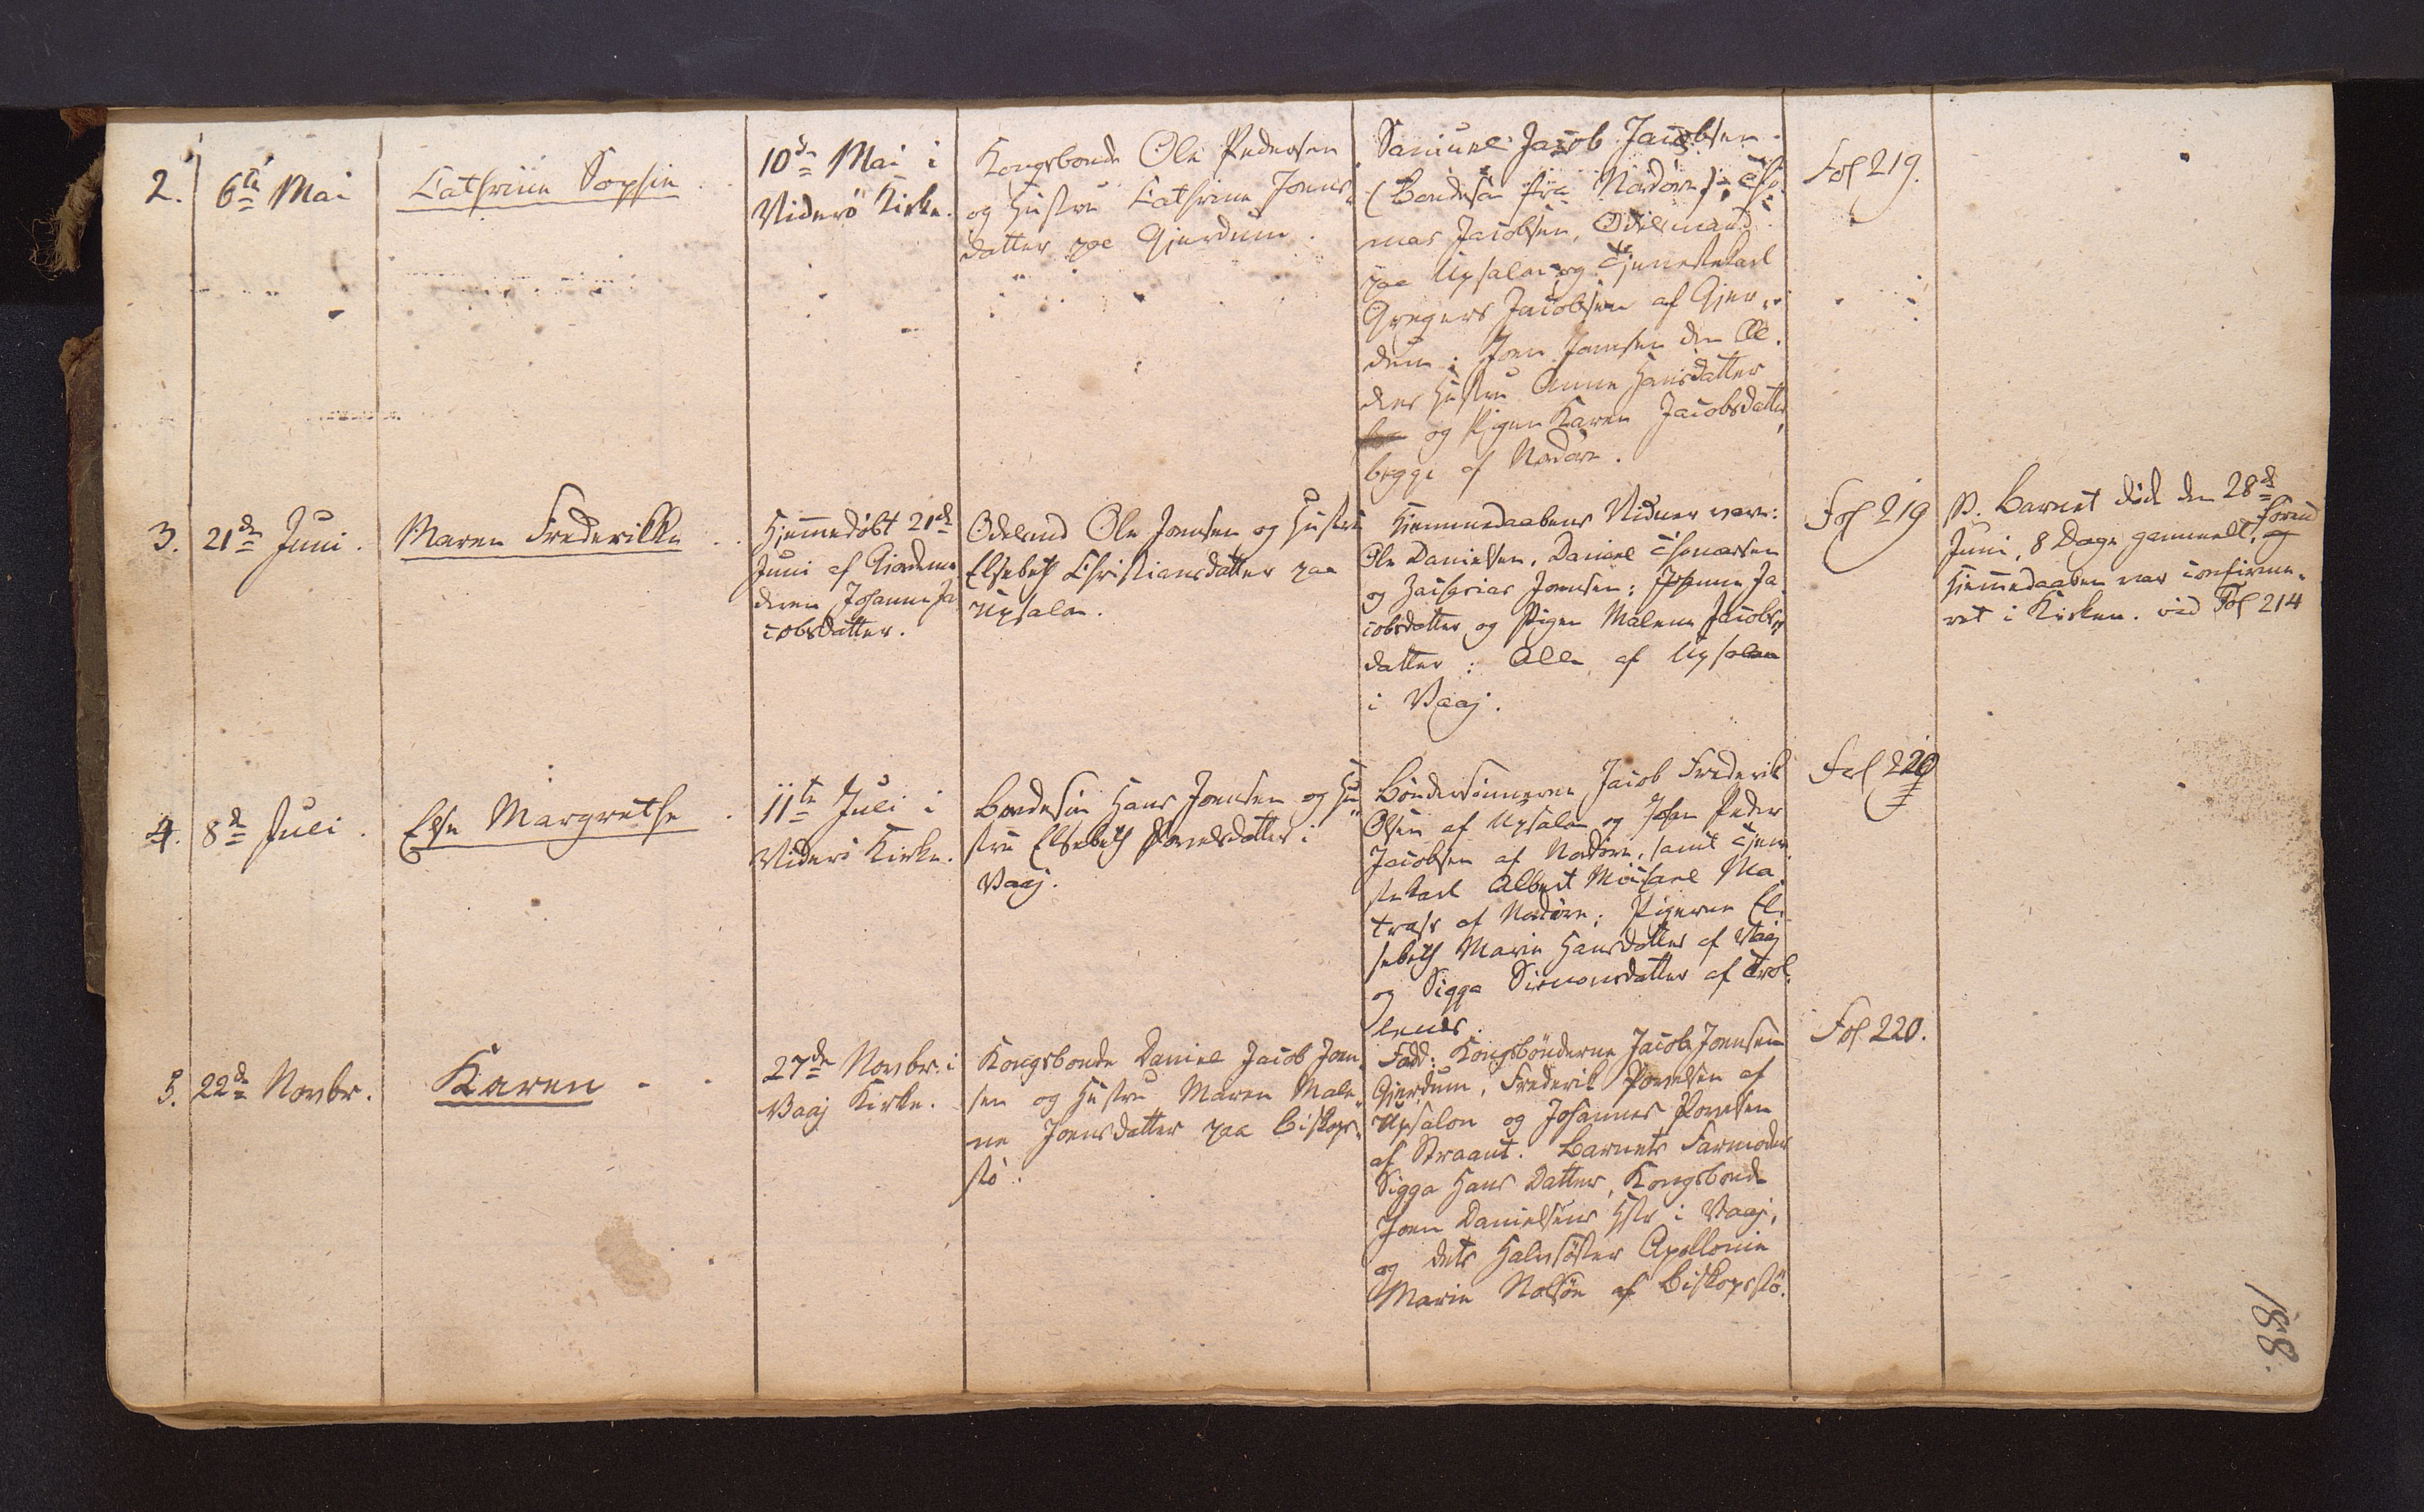 2.
6te Mai
Cathrine Sophie
10de Mai i
Viderö Kirke.
Kongsbonde Ole Pedersen
og Hustru Cathrine Joens-
datter paa Gjerdum.
Samuel Jacob Jacobsen
(Bondesön fra Nordöre); Tho-
mas Jacobsen, Odelsmand
paa Upsalon og Tjenestekarl
Gregers Jacobsen af Gjer-
dum; Joen Joensen den Æl-
dres Hustru Anne Hansdatter
og Pigen Karen Jacobsdatter,
begge af Nordöre.
Fol 219.
3.
21de Juni.
Maren Frederikke
Hjemmedöbt 21de
Juni af Giordemo-
deren Johanne Ja-
cobsdatter.
Odelsmd Ole Joensen og Hustru
Elsebeth Christiansdatter paa
Upsalon.
Hjemmedaabens Vidner vare:
Ole Danielsen, Daniel Thomassen
og Zacharias Joensen; Johanne Ja-
cobsdatter og Pigen Malene Jacobs-
datter: Alle af Upsalon
i Vaaj.
Fol 219
N. Barnet döde den 28de
Juni, 8 Dage gammelt, og forend
Hjemmedaaben var confirme-
ret i Kirken. vid Fol 214
4.
8de Juli.
Else Margrethe
11te Juli i
Viderö Kirke.
Bondesön Hans Joensen og Hu-
stru Elsebeth Povelsdatter i
Vaaj.
Böndersönnerne Jacob Frederik
Olsen af Upsalon og Johan Peder
Jacobsen af Nordöre, samt Tjene-
stekarl Albert Michael Ma-
trass af Nordöre; Pigerne El-
sebeth Marie Hansdatter af Vaaj
og Sigga Simonsdatter af Trol-
lenæs.
Fol 220
5.
22de Novbr.
Karen
27de Novbr. i
Vaaj Kirke.
Kongsbonde Daniel Jacob Joen-
sen og Hustru Maren Male-
ne Joensdatter paa Biskops-
stö.
Fadd: Kongsbönderne Jacob Joensen
Gjerdum, Frederik Povelsen af
Upsalon og Johannes Povelsen
af Straant. Barnets Farmoder
Sigga Hans Datter, Kongsbonde
Joen Danielsens Hstr i Vaaj,
og dets Halvsöster Apollonie
Marie Nolsöe af Biskopsstö.
Fol 220.
188.